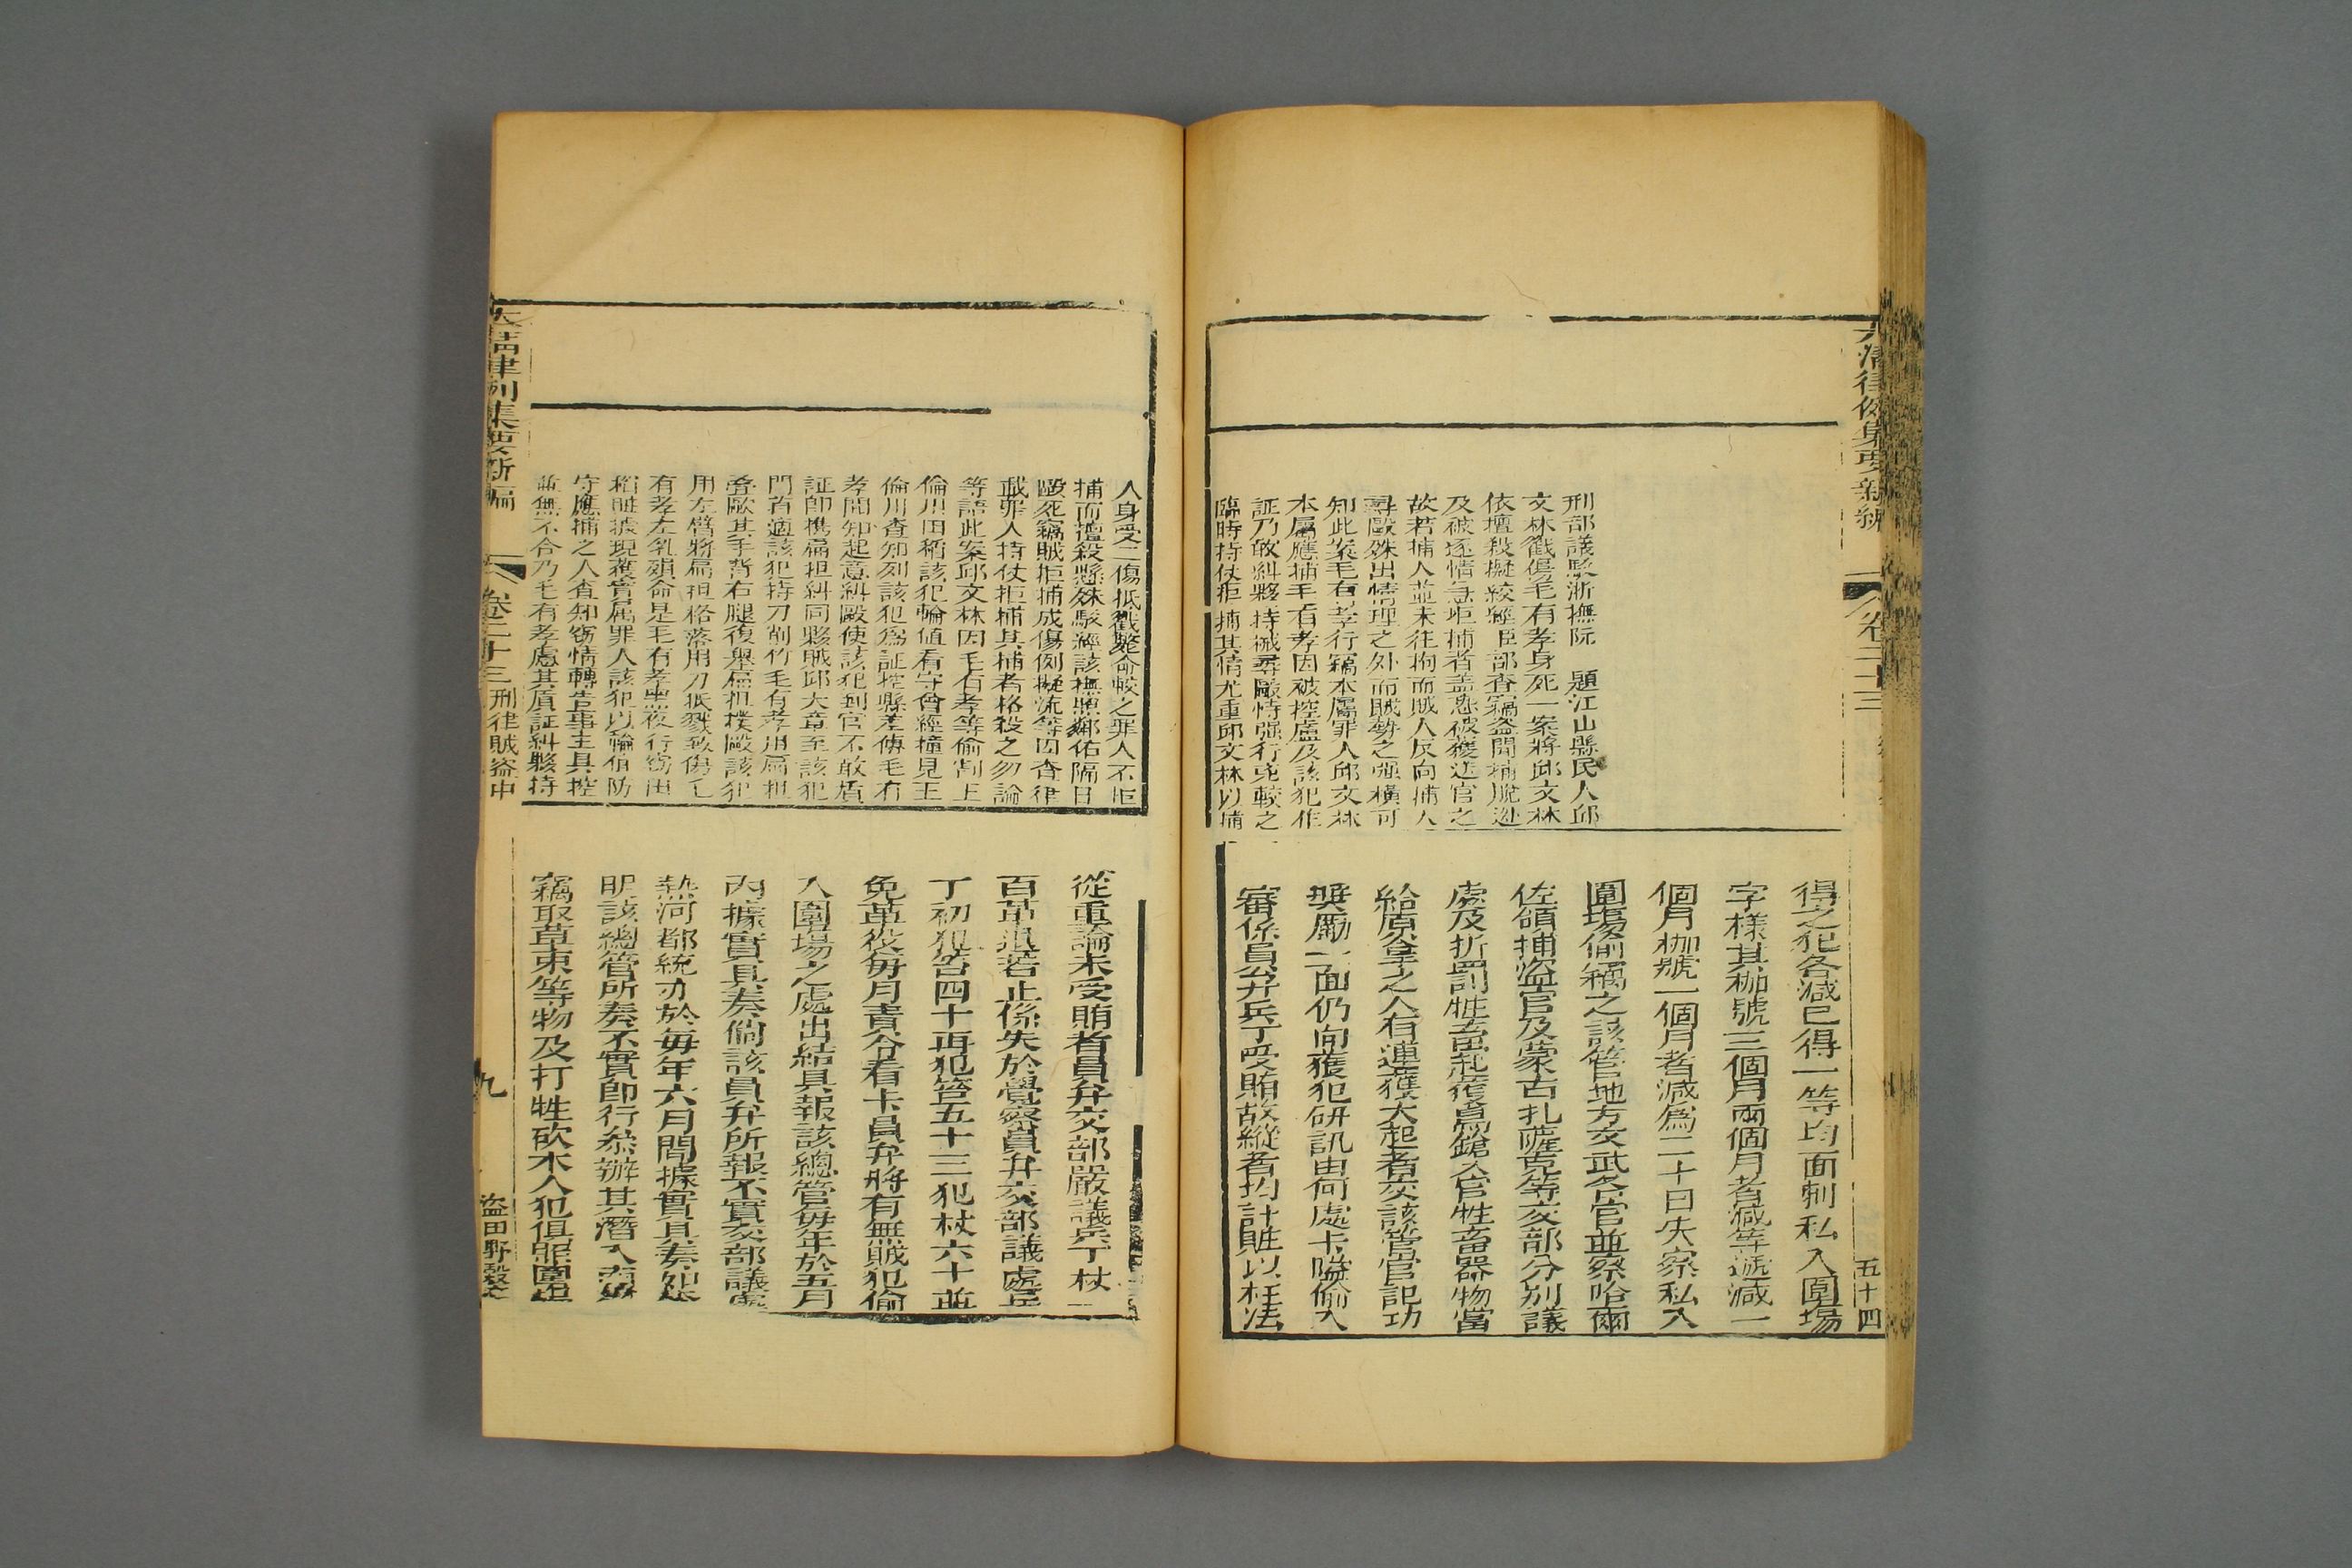 大清律例集要新編
卷二十三
五十四
刑部議駁浙撫阮 題江山縣民人邱
文林戳傷毛有孝身死一案將邱文林
依擅殺擬絞經臣部查竊盗聞捕脫逃
及被逐情急拒捕者盖恐被獲送官之
故若捕人並未往拘而賊人反向捕人
尋毆殊出情理之外而賊勢之强橫可
知此案毛有孝行竊本屬罪人邱文林
本屬應捕毛有孝因被控處及該犯作
証乃敢糾夥持械尋毆恃强行兇較之
臨時持仗拒捕其情尤重邱文林以捕
得之犯各減已得一等均面刺私入圍場
字樣其枷號三個月兩個月者減等遞減一
個月枷號一個月者減爲二十日失察私入
圍塲偷竊之該管地方文武各官並察哈爾
佐領捕盗官及蒙古扎薩克等交部分別議
處及折罰牲畜起獲鳥鎗入官牲畜器物當
給原拿之人有連獲大起者交該管官記功
奬勵一面仍向獲犯研訊由何處卡隘偷入
審係員弁兵丁受賄故縱者均計賍以枉法
人身受二傷抵戳斃命較之罪人不拒
捕而擅殺懸殊駁經該撫照鄰佑隔日
毆死竊賊拒捕成傷例擬流等因查律
載罪人持仗拒捕其捕者格殺之勿論
等語此案邱文林因毛有孝等偷割上
倫川田稻該犯輪值看守曾經撞見王
倫川查知列該犯爲証控縣差傳毛有
孝聞知起意糾毆使該犯到官不敢質
証即携扁担糾同夥賊邱大章至該犯
門首適該犯持刀削竹毛有孝用扁担
疊毆其手背右腿復舉扁担撲毆該犯
用左臂將扁担格落用刀抵戳致傷毛
有孝左乳殞命是毛有孝黑夜行竊田
稻賍據現獲實屬罪人該犯以輪值防
守應捕之人查知竊情轉告事主具控
並無不合乃毛有孝慮其質証糾夥持
從重論未受賄者員弁交部嚴議兵丁杖一
百革退若止係失於覺察員弁交部議處兵
丁初犯笞四十再犯笞五十三犯杖六十並
免革役每月責令看卡員弁將有無賊犯偷
入圍場之處出結具報該總管每年於五月
內據實具奏倘該員弁所報不實交部議處
熱河都統亦於每年六月間據實具奏如
明該總管所奏不實即行叅辦其潛入
竊取草束等物及打牲砍木人犯俱
大清律例集要新編
卷二十三 刑律賊盗中
九
盗田野穀麥